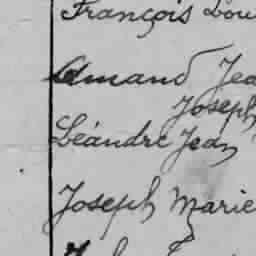 François Lou
Amand Jea
Joseph
Léandre Jean
Joseph Marie